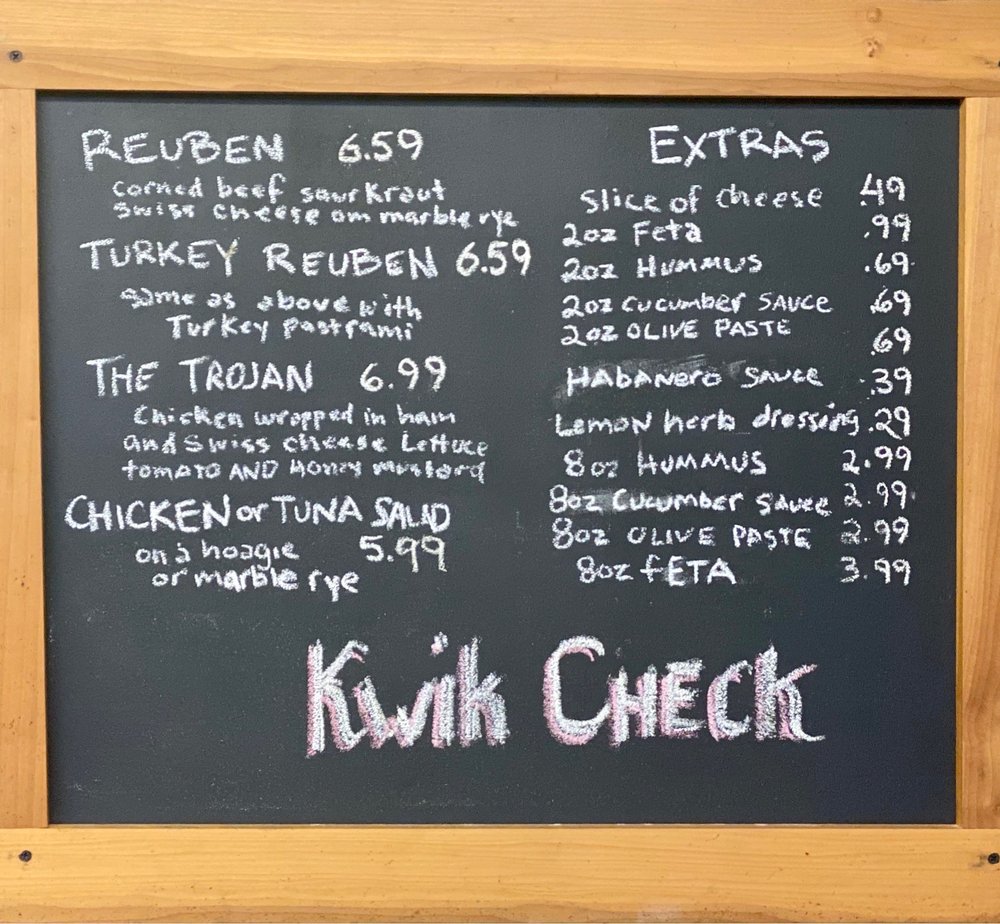 REUBEN 6.59
corned beef saurkraut
swiss cheese on marble rye
TURKEY REUBEN 6.59
same as above with
Turkey pastrami
THE TROJAN 6.99
Chicken wrapped in ham
and swiss cheese Lettuce
tomato AND Honey mustard
CHICKEN or TUNA SALAD
on a hoagie 5.99
or marble rye
EXTRAS
Slice of cheese .49
2oz Feta .99
2oz HUMMUS .69
2oz cucumber SAUCE .69
2oz OLIVE PASTE .69
HAbANero SAUCE .39
Lemon herb dressing .29
8oz HUMMUS 2.99
8oz Cucumber Sauce 2.99
8oz OLIVE PASTE 2.99
8oz fETA 3.99
Kwik CHECK